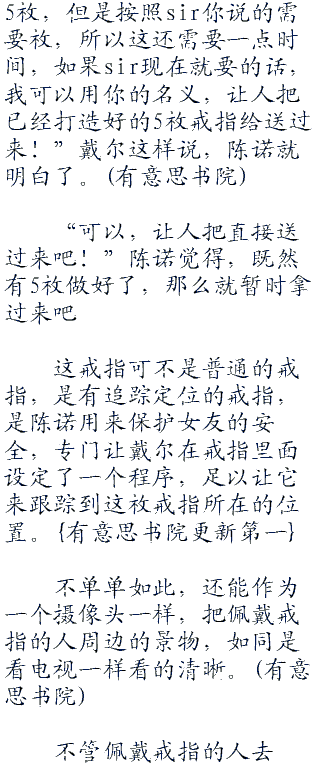 5枚，但是按照sir你说的需
要枚，所以这还需要一点时
间，如果sir现在就要的话，
我可以用你的名义，让人把
已经打造好的5枚戒指给送过
来！”戴尔这样说，陈诺就
明白了。(有意思书院)
“可以，让人把直接送
过来吧！”陈诺觉得，既然
有5枚做好了，那么就暂时拿
过来吧
这戒指可不是普通的戒
指，是有追踪定位的戒指，
是陈诺用来保护女友的安
全，专门让戴尔在戒指里面
设定了一个程序，足以让它
来跟踪到这枚戒指所在的位
置。{有意思书院更新第一}
不单单如此，还能作为
一个摄像头一样，把佩戴戒
指的人周边的景物，如同是
看电视一样看的清晰。(有意
思书院)
不管佩戴戒指的人去